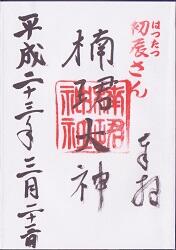 はつたつ
初辰さん
奉拝
楠珺大神
楠珺
神社
平成二十三年三月